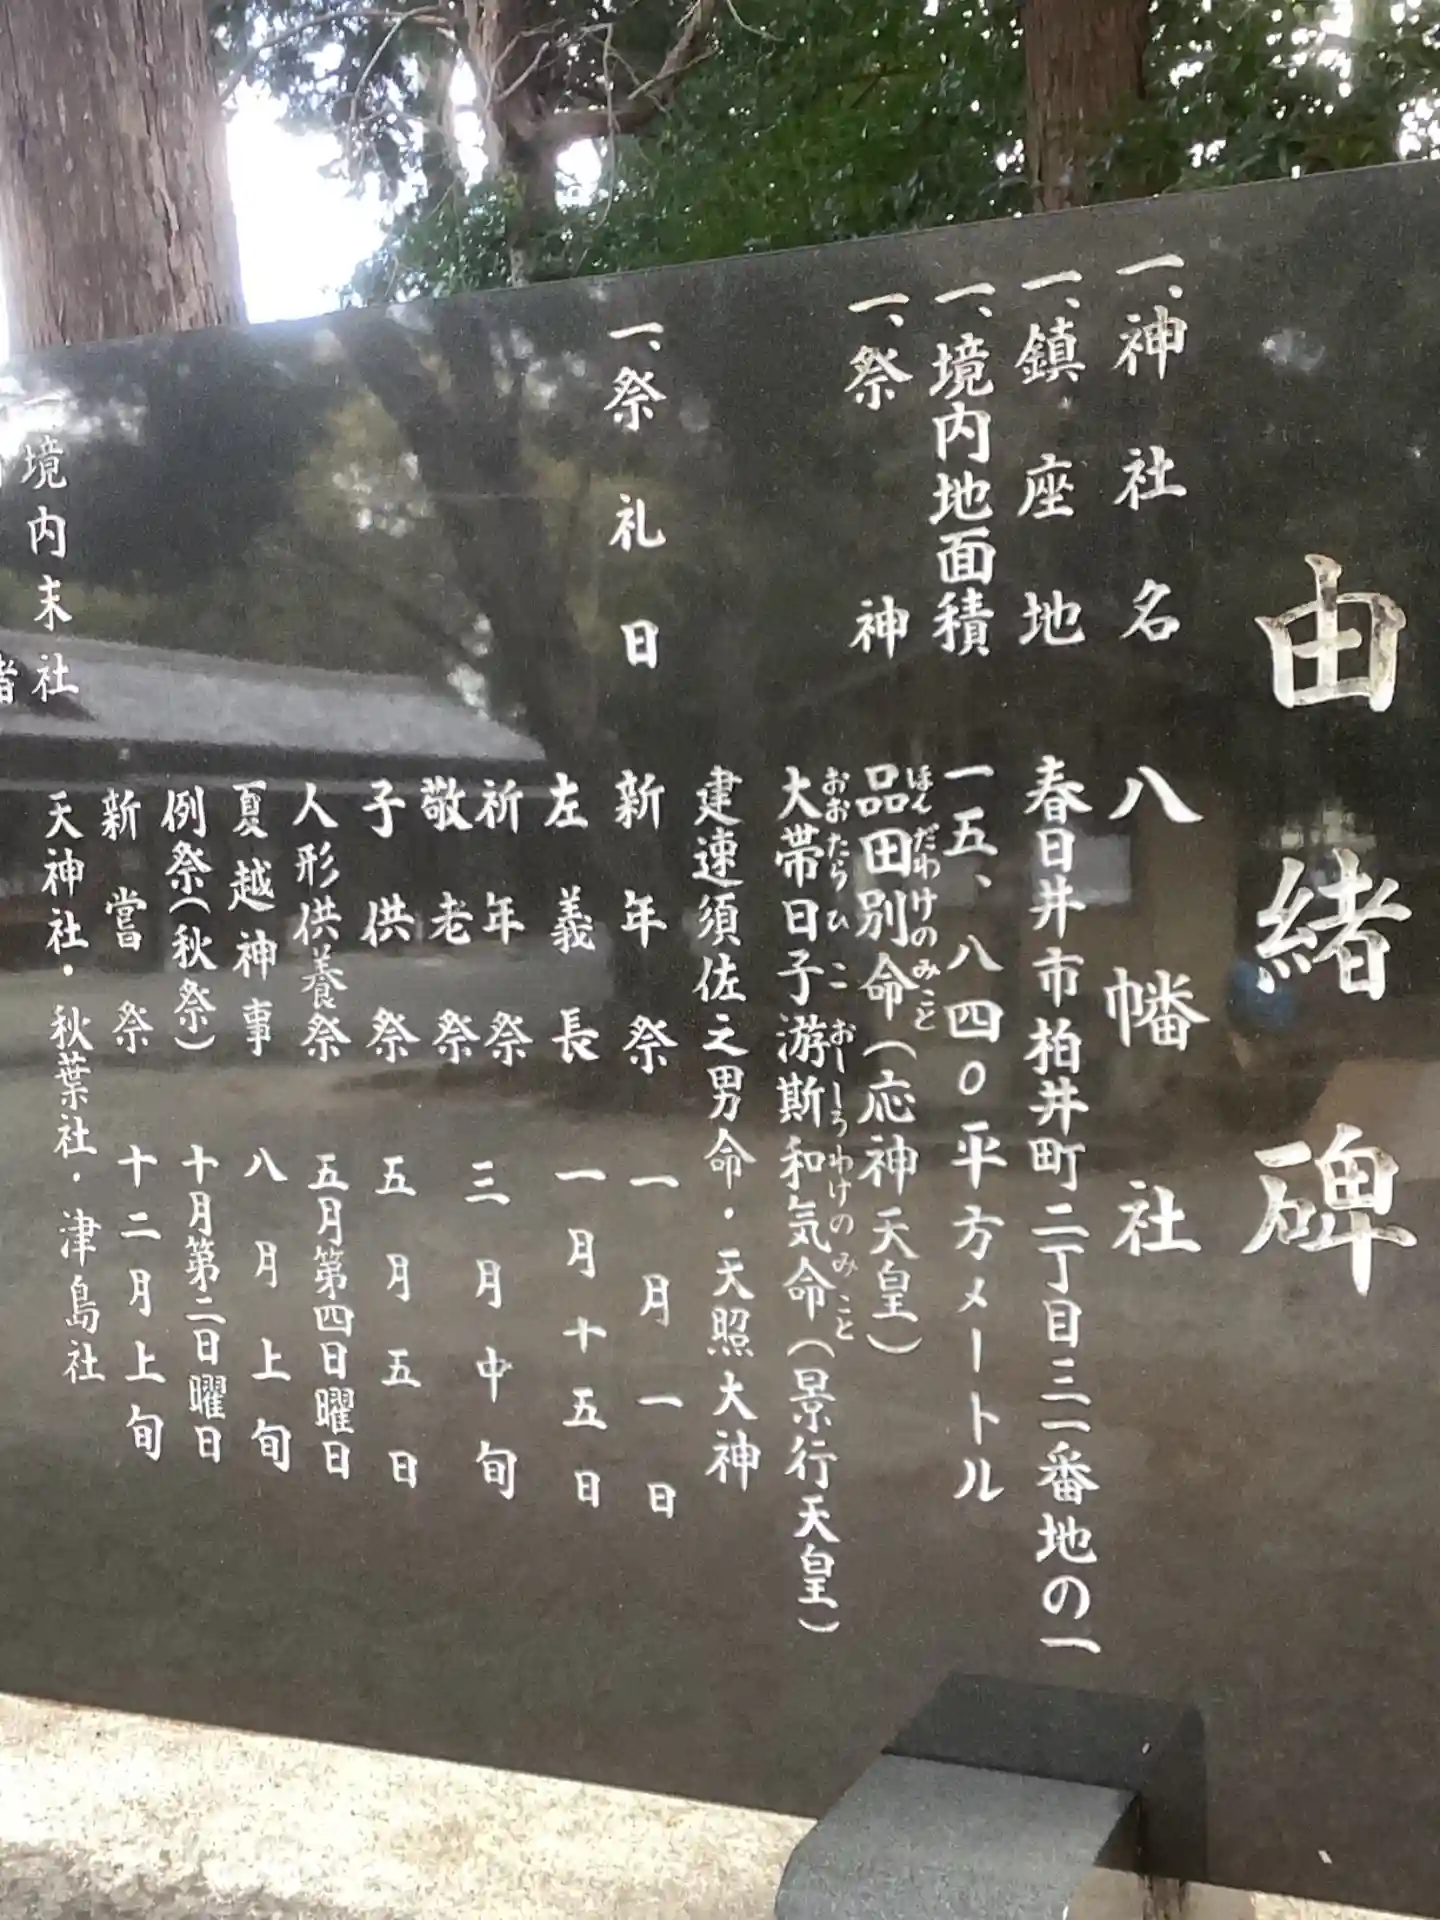 由緒碑
一、神社名 八幡社
一、鎮座地 春日井市柏井町二丁目三一番地の一
一、境内地面積 一五、八四〇平方メートル
一、祭神 品田別命(応神天皇)
ほんだわけのみこと
大帯日子游斯和気命(景行天皇)
おおたらひこおしろわけのみこと
建速須佐之男命・天照大神
一、祭礼日 新年祭 一月一日
左義長 一月十五日
祈年祭 三月中旬
敬老祭
子供祭 五月五日
人形供養祭 五月第四日曜日
夏越神事 八月上旬
例祭(秋祭) 十月第二日曜日
新嘗祭 十二月上旬
境内末社 天神社・秋葉社・津島社
緒